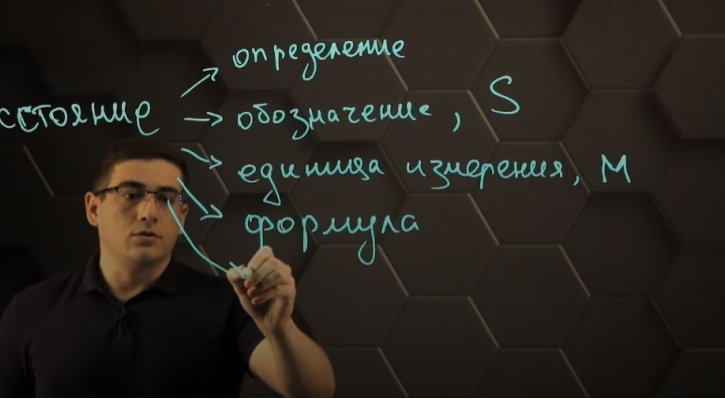 сстояние
определение
обозначение, S
единица измерения, М
формула